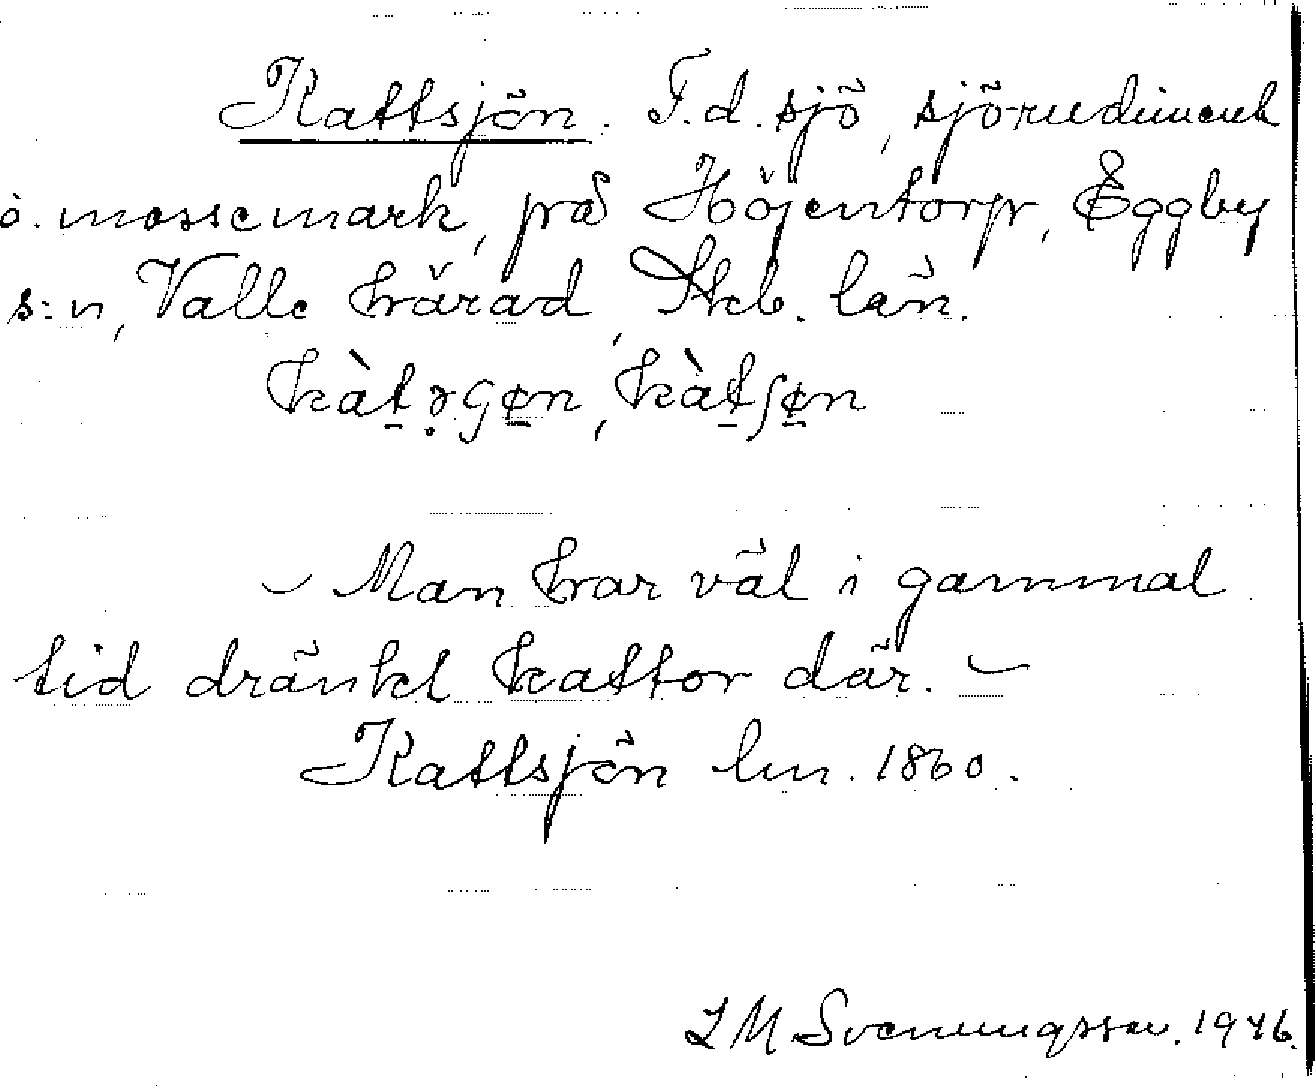 Kattsjön. F.d. sjö, sjörudiment
o. mossemark, på Höjentorp, Eggby
s:n, Valle härad, Skb. län.
kàt
Man har väl i gammal
tid dränkt kattor där. –
Kattsjön lm. 1860.
Svenungsson. 1946.